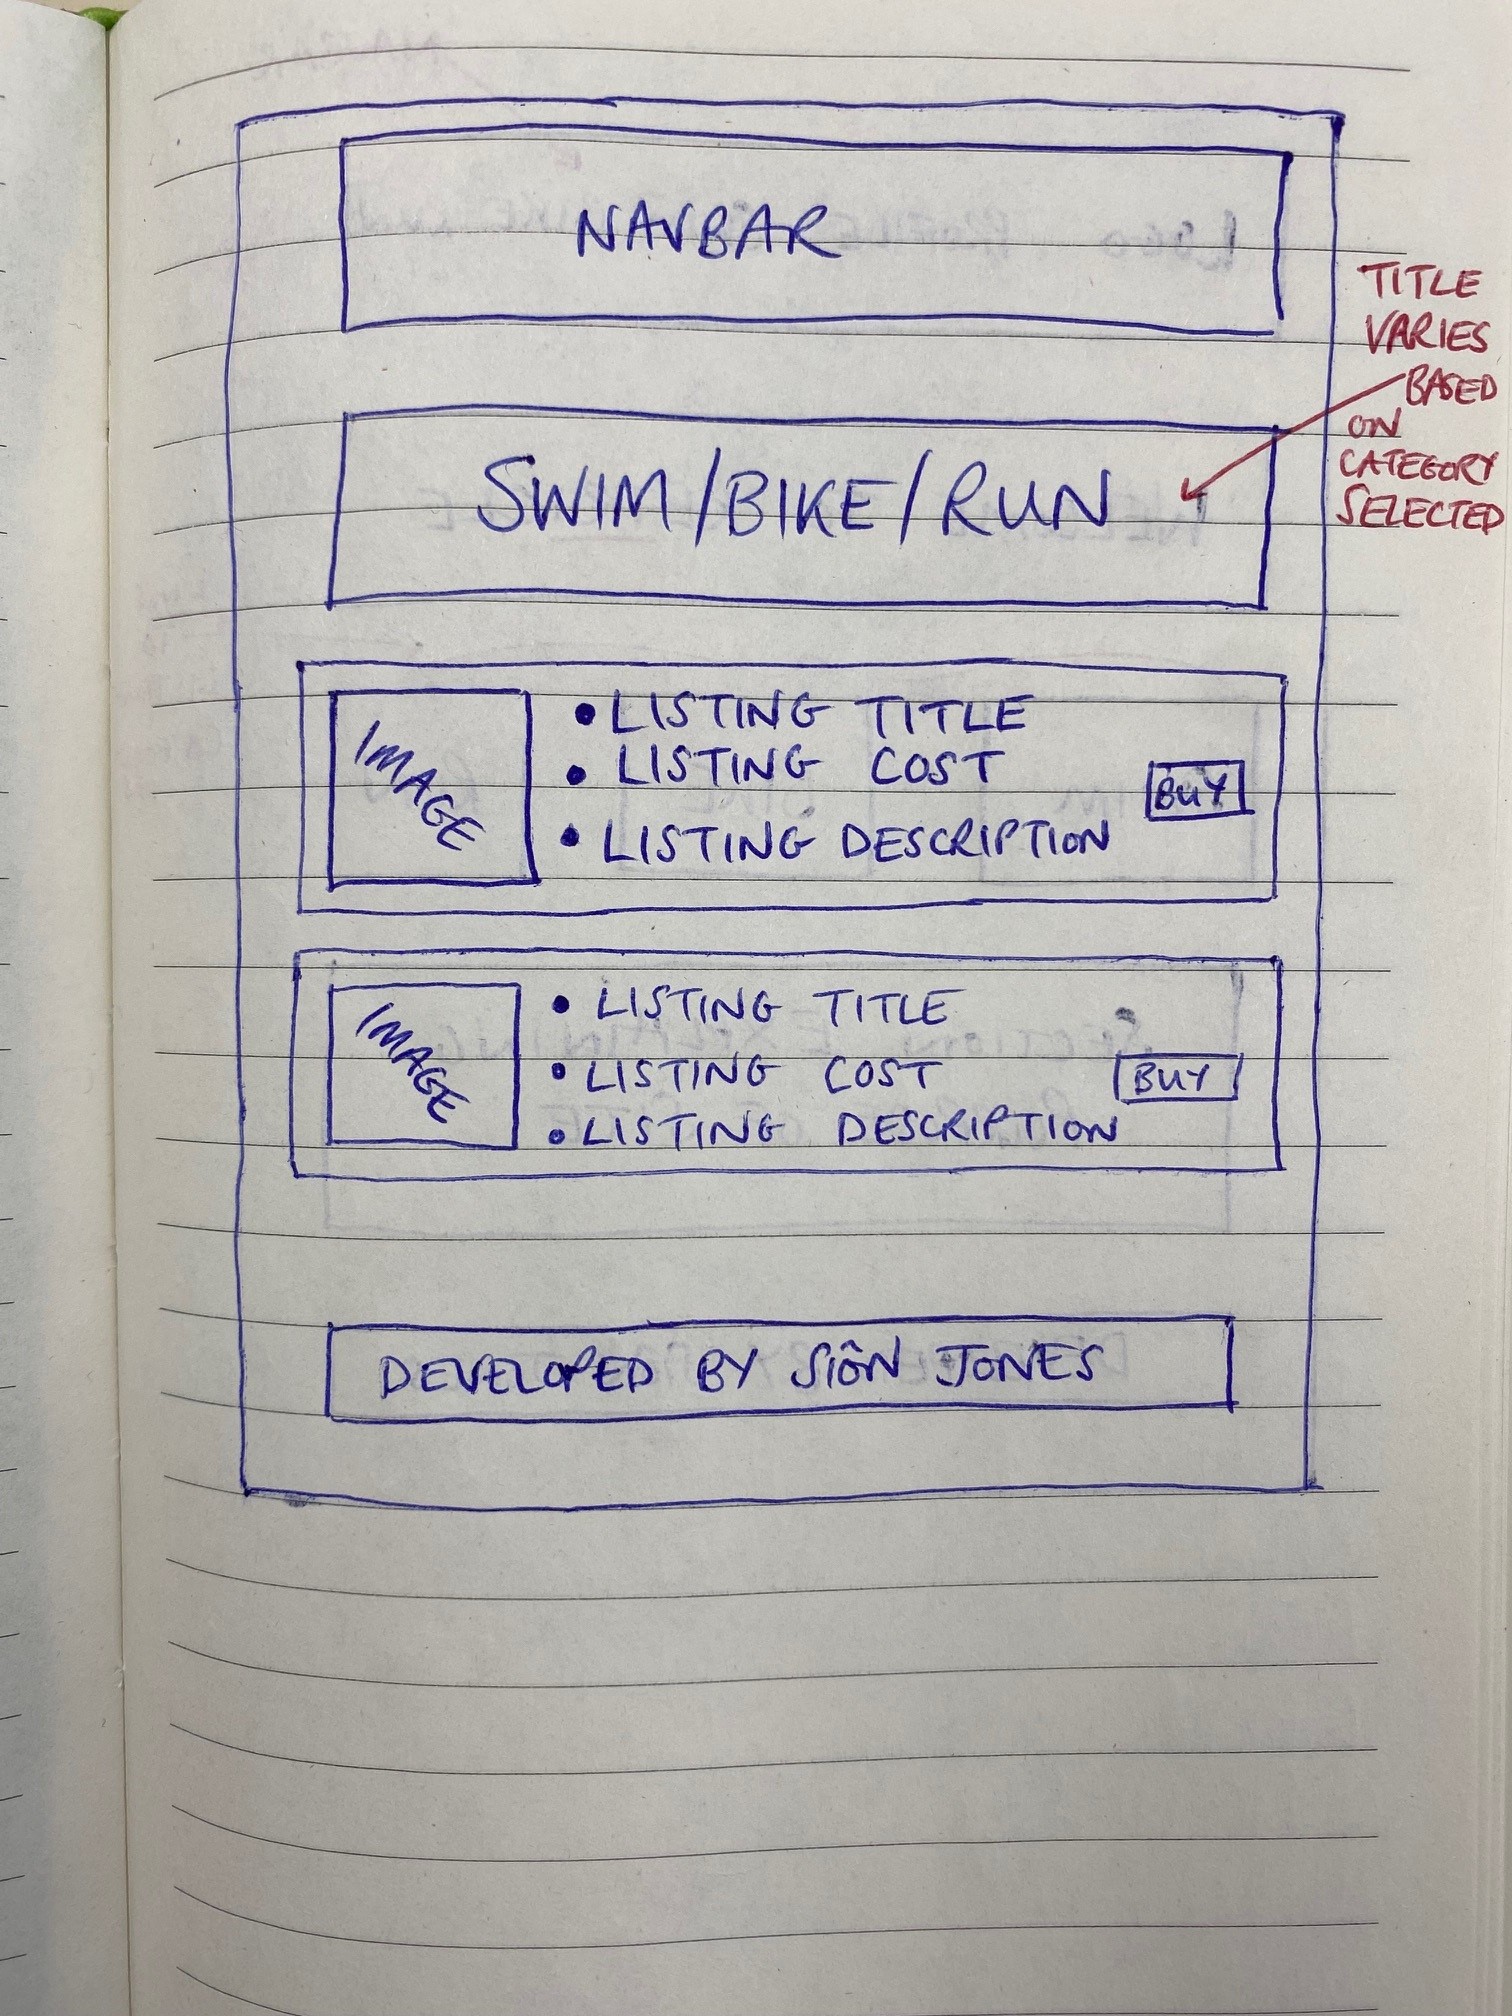 NAVBAR
TITLE
VARIES
BASED
ON
CATEGORY
SELECTED
SWIM/BIKE/RUN
IMAGE
• LISTING TITLE
• LISTING COST
• LISTING DESCRIPTION
BUY
IMAGE
• LISTING TITLE
• LISTING COST
• LISTING DESCRIPTION
BUY
DEVELOPED BY SIÔN JONES